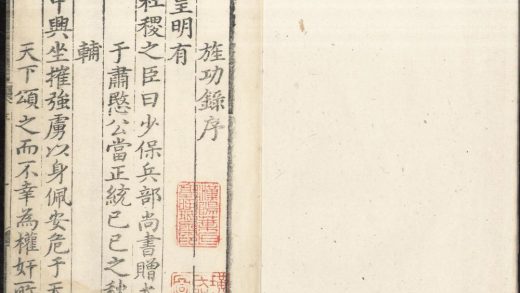 旌功錄序
皇明有
社稷之臣曰少保兵部尚書贈太
于肅愍公當正統己巳之秋
輔
中興坐摧強虜以身佩安危于天
天下頌之而不幸為權奸所